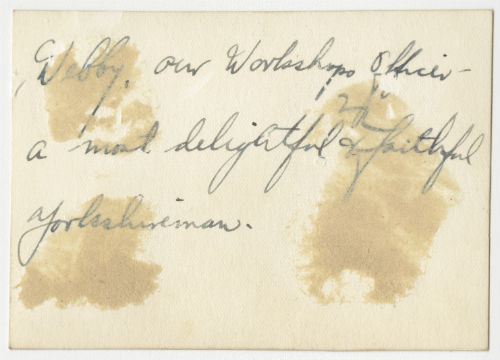 Webby, our Workshops Officer -
a most delightful & faithful
Yorkshireman.